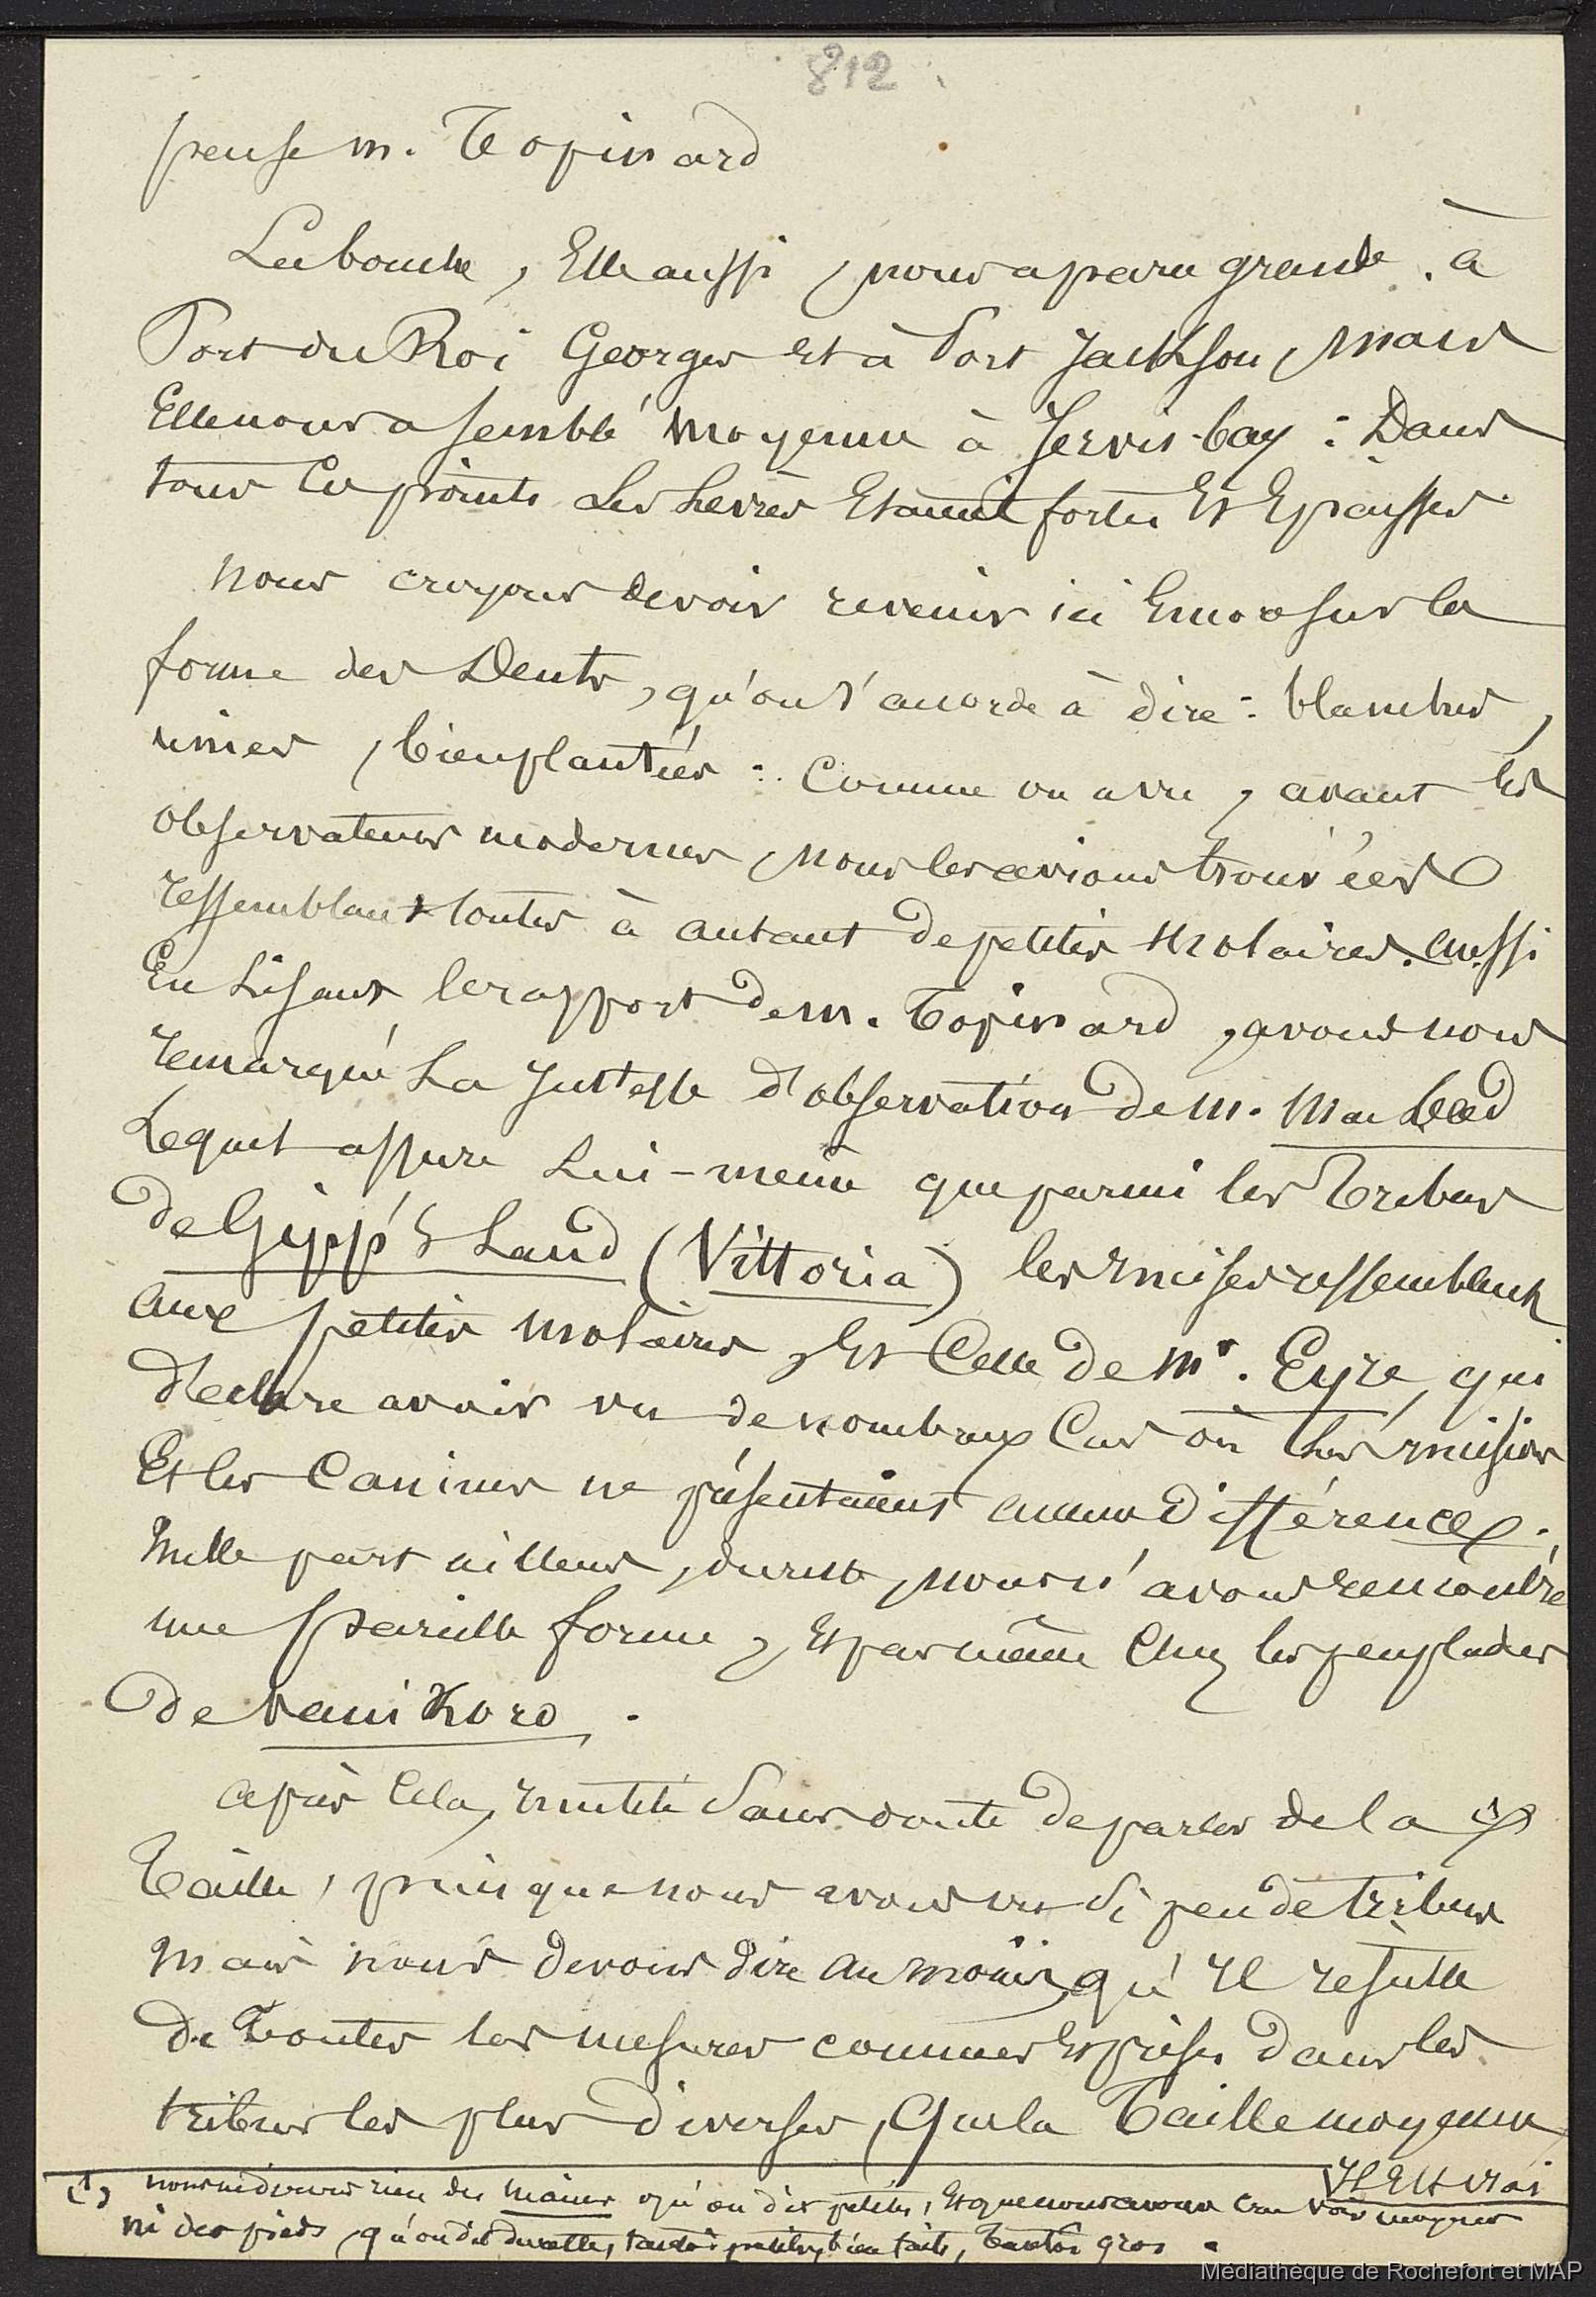 812
pense m. Topinard
La bouche, Elle aussi, nous a paru grande. à
Port du Roi Georges et à Port Jackson, mais
Elle nous a semblé moyenne à Jervis-bay : Dans
tous ces points Les Levres Etaient fortes Et Epaisses.
nous croyons devoir revenir ici Encore sur la
forme des Dents, qu'on s'accorde à dire : blanches,
unies, bien plantées : Comme on a vu, avant les
observateurs modernes, nous les avions trouvées
ressemblant toutes à autant de petites molaires. aussi
En Lisant le rapport de m. Topinard, avons nous
remarqué La Justesse d'observation de m. Mac Leod
Lequel assure Lui-même que parmi les Tribus
de Gipp's Land (Vittoria) les Incises ressemblent
aux petites molaires, Et Celle de Mr. Eyre, qui
déclare avoir vu de nombreux Cas où Les Incisives
Et les Canines ne présentaient aucune différence.
Nulle part ailleurs, du reste, nous n'avons rencontré
une pareille forme, Et pas même Chez les peuplades
de Vanikoro.
après Cela, Inutile Sans doute de parler de la (1)
Taille, puisque nous avons vu Si peu de tribus
mais nous devons dire au moins, qu'Il resulte
de Toutes les mesures connues Et prises dans les
tribus les plus diverses, Que la Taille moyenne
(1) nous ne dirons rien des mains qu'on dit petites, Et que nous avons Cru voir moyennes Il Est vrai
ni des pieds, qu'on dit de taille, tantôt petits, bien faits, Tantôt gros.
Médiathèque de Rochefort et MAP